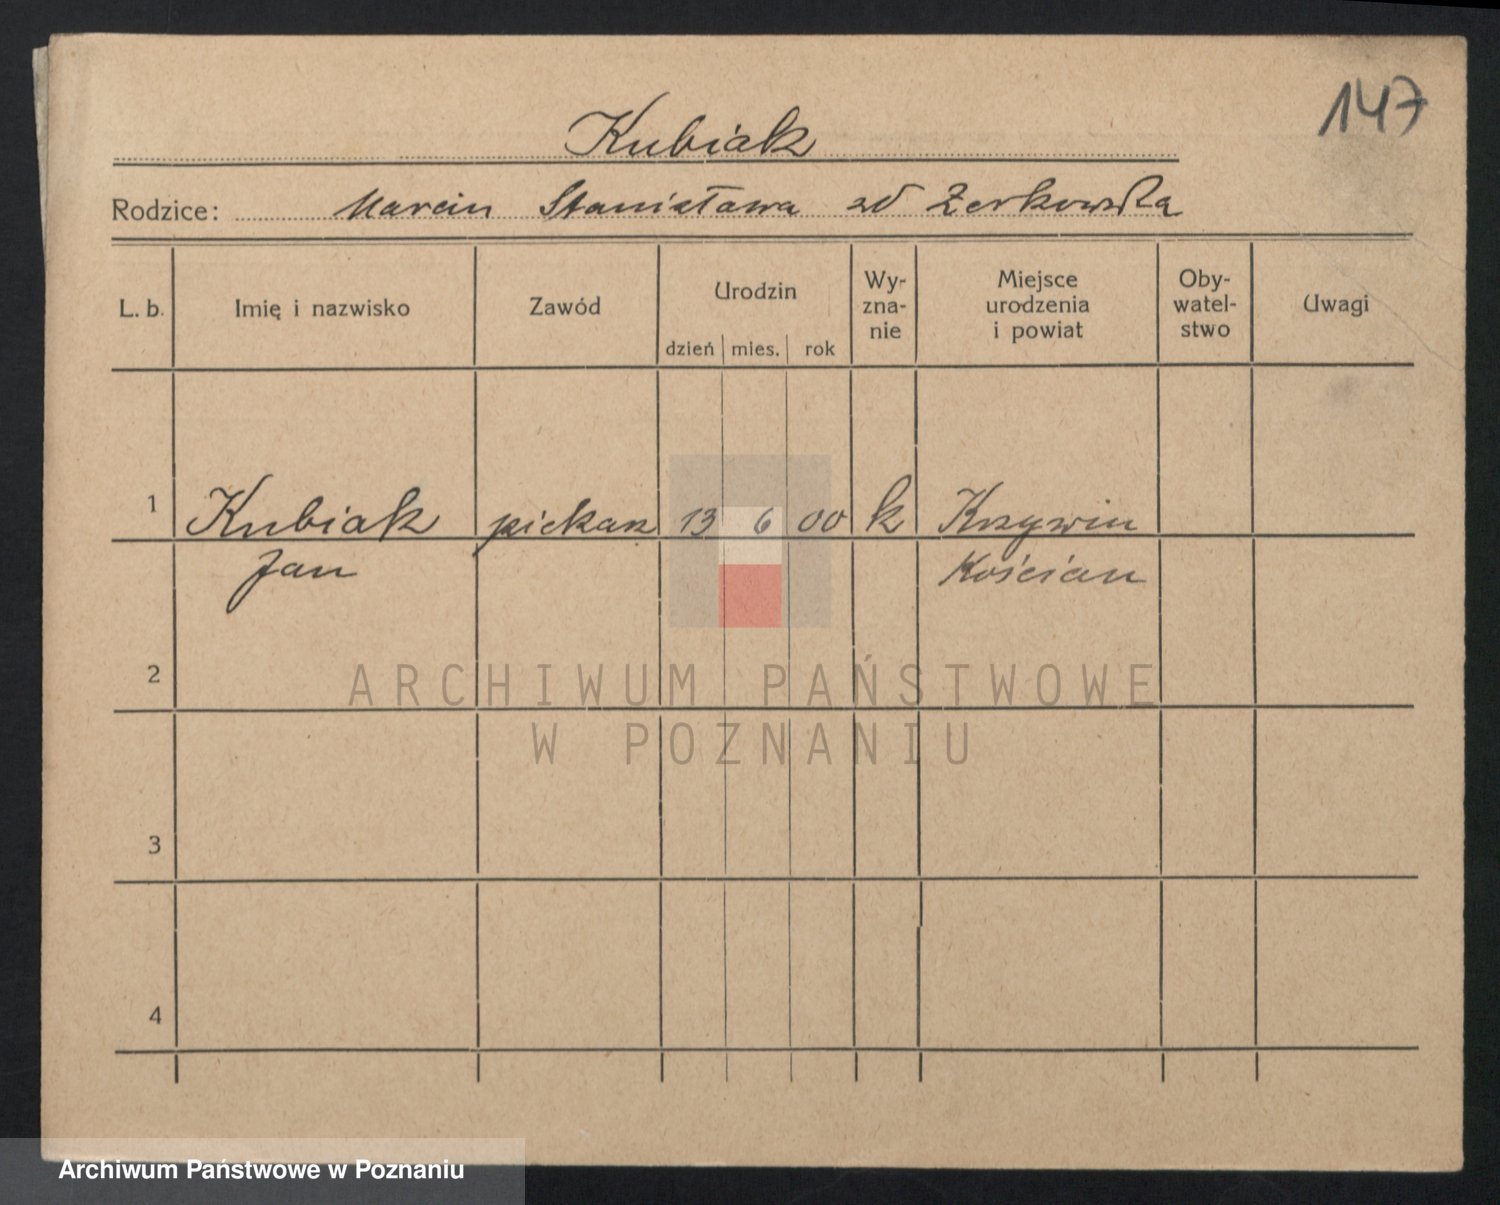 147
Kubiak
Rodzice: Marcin Stanisława zd Żerkowska
L. b. Imię i nazwisko Zawód Urodzin Wy- Miejsce Oby- Uwagi
zna- urodzenia watel-
nie i powiat stwo
dzień mies. rok
1 Kubiak piekarz 13 6 00 k Krzywin
Jan Kościan
2
ARCHIWUM PAŃSTWOWE
W POZNANIU
3
4
Archiwum Państwowe w Poznaniu